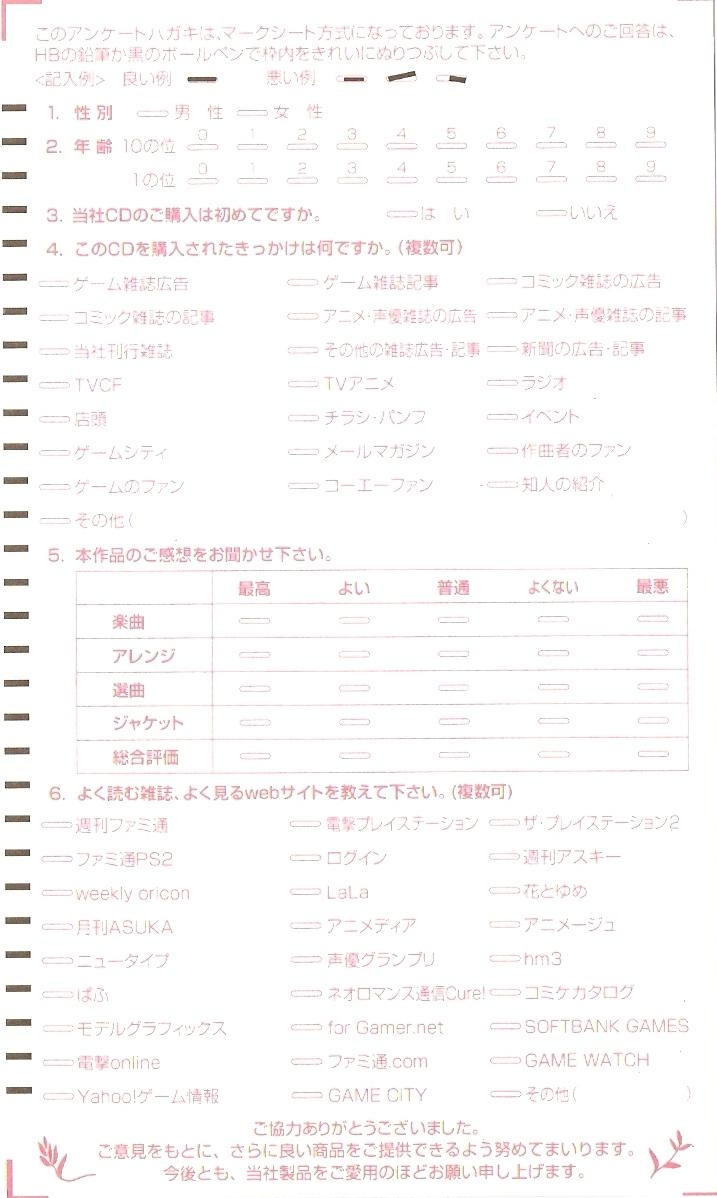 このアンケートハガキは、マークシート方式になっております。アンケートへのご回答は、
HBの鉛筆か黒のボールペンで枠内をきれいにぬりつぶして下さい。
<記入例> 良い例 悪い例
1. 性別 男 性 女 性
2. 年齢 10の位 0 1 2 3 4 5 6 7 8 9
1の位 0 1 2 3 4 5 6 7 8 9
3. 当社CDのご購入は初めてですか。 は い いいえ
4. このCDを購入されたきっかけは何ですか。(複数可)
ゲーム雑誌広告 ゲーム雑誌記事 コミック雑誌の広告
コミック雑誌の記事 アニメ・声優雑誌の広告 アニメ・声優雑誌の記事
当社刊行雑誌 その他の雑誌広告・記事 新聞の広告・記事
TVCF TVアニメ ラジオ
店頭 チラシ・パンフ イベント
ゲームシティ メールマガジン 作曲者のファン
ゲームのファン コーエーファン 知人の紹介
その他( )
5. 本作品のご感想をお聞かせ下さい。
最高 よい 普通 よくない 最悪
楽曲
アレンジ
選曲
ジャケット
総合評価
6. よく読む雑誌、よく見るwebサイトを教えて下さい。(複数可)
週刊ファミ通 電撃プレイステーション ザ・プレイステーション2
ファミ通PS2 ログイン 週刊アスキー
weekly oricon LaLa 花とゆめ
月刊ASUKA アニメディア アニメージュ
ニュータイプ 声優グランプリ hm3
ぱふ ネオロマンス通信Cure! コミケカタログ
モデルグラフィックス for Gamer.net SOFTBANK GAMES
電撃online ファミ通.com GAME WATCH
Yahoo!ゲーム情報 GAME CITY その他( )
ご協力ありがとうございました。
ご意見をもとに、さらに良い商品をご提供できるよう努めてまいります。
今後とも、当社製品をご愛用のほどお願い申し上げます。